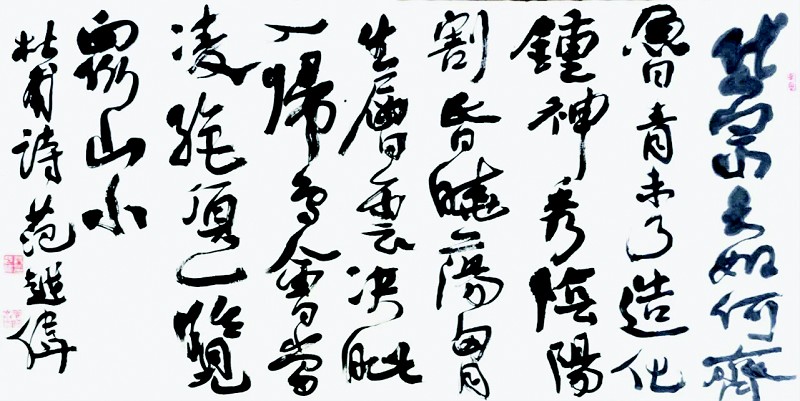 岱宗夫如何齊
魯青未了造化
鍾神秀陰陽
割昏曉蕩胷
生層雲決眦
入歸鳥會當
凌絶頂一覽
衆山小
杜甫詩 范越偉